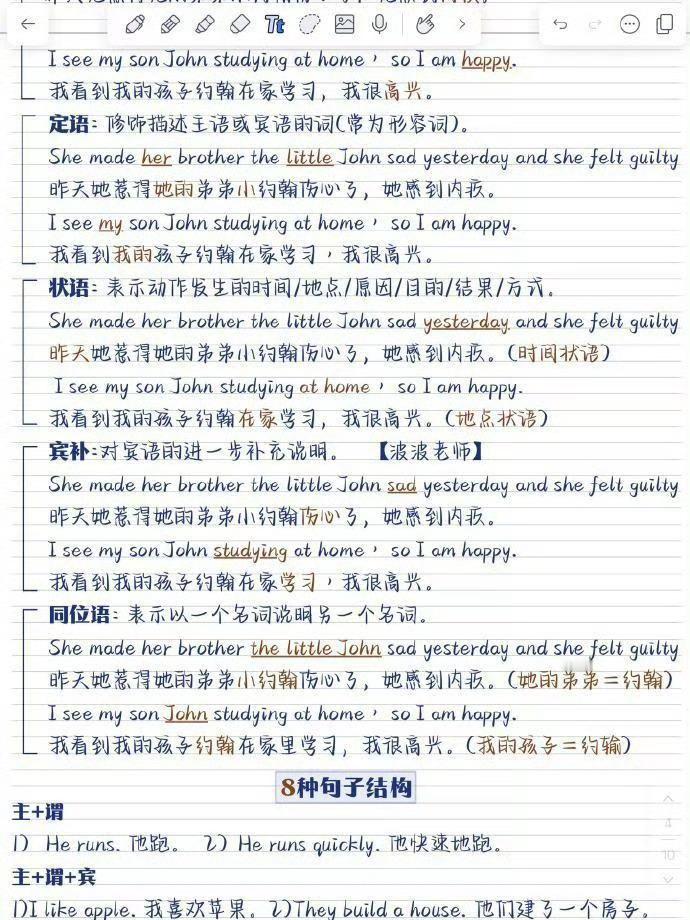 I see my son John studying at home, so I am happy.
我看到我的孩子约翰在家学习，我很高兴。
定语：修饰描述主语或宾语的词(常为形容词)。
She made her brother the little John sad yesterday and she felt guilty
昨天她惹得她的弟弟小约翰伤心了，她感到内疚。
I see my son John studying at home，so I am happy.
我看到我的孩子约翰在家学习，我很高兴。
状语：表示动作发生的时间/地点/原因/目的/结果/方式。
She made her brother the little John sad yesterday and she felt guilty
昨天她惹得她的弟弟小约翰伤心了，她感到内疚。(时间状语)
I see my son John studying at home，so I am happy.
我看到我的孩子约翰在家学习，我很高兴。(地点状语)
宾补:对宾语的进一步补充说明。 【波波老师】
She made her brother the little John sad yesterday and she felt guilty
昨天她惹得她的弟弟小约翰伤心了，她感到内疚。
I see my son John studying at home，so I am happy.
我看到我的孩子约翰在家学习，我很高兴。
同位语：表示以一个名词说明另一个名词。
She made her brother the little John sad yesterday and she felt guilty
昨天她惹得她的弟弟小约翰伤心了，她感到内疚。(她的弟弟=约翰)
I see my son John studying at home，so I am happy.
我看到我的孩子约翰在家里学习，我很高兴。(我的孩子=约输)
8种句子结构
主+谓
1) He runs. 他跑。 2) He runs quickly. 他快速地跑。
4
10
主+谓+宾
1)I like apple. 我喜欢苹果。2)They build a house. 他们建了一个房子.